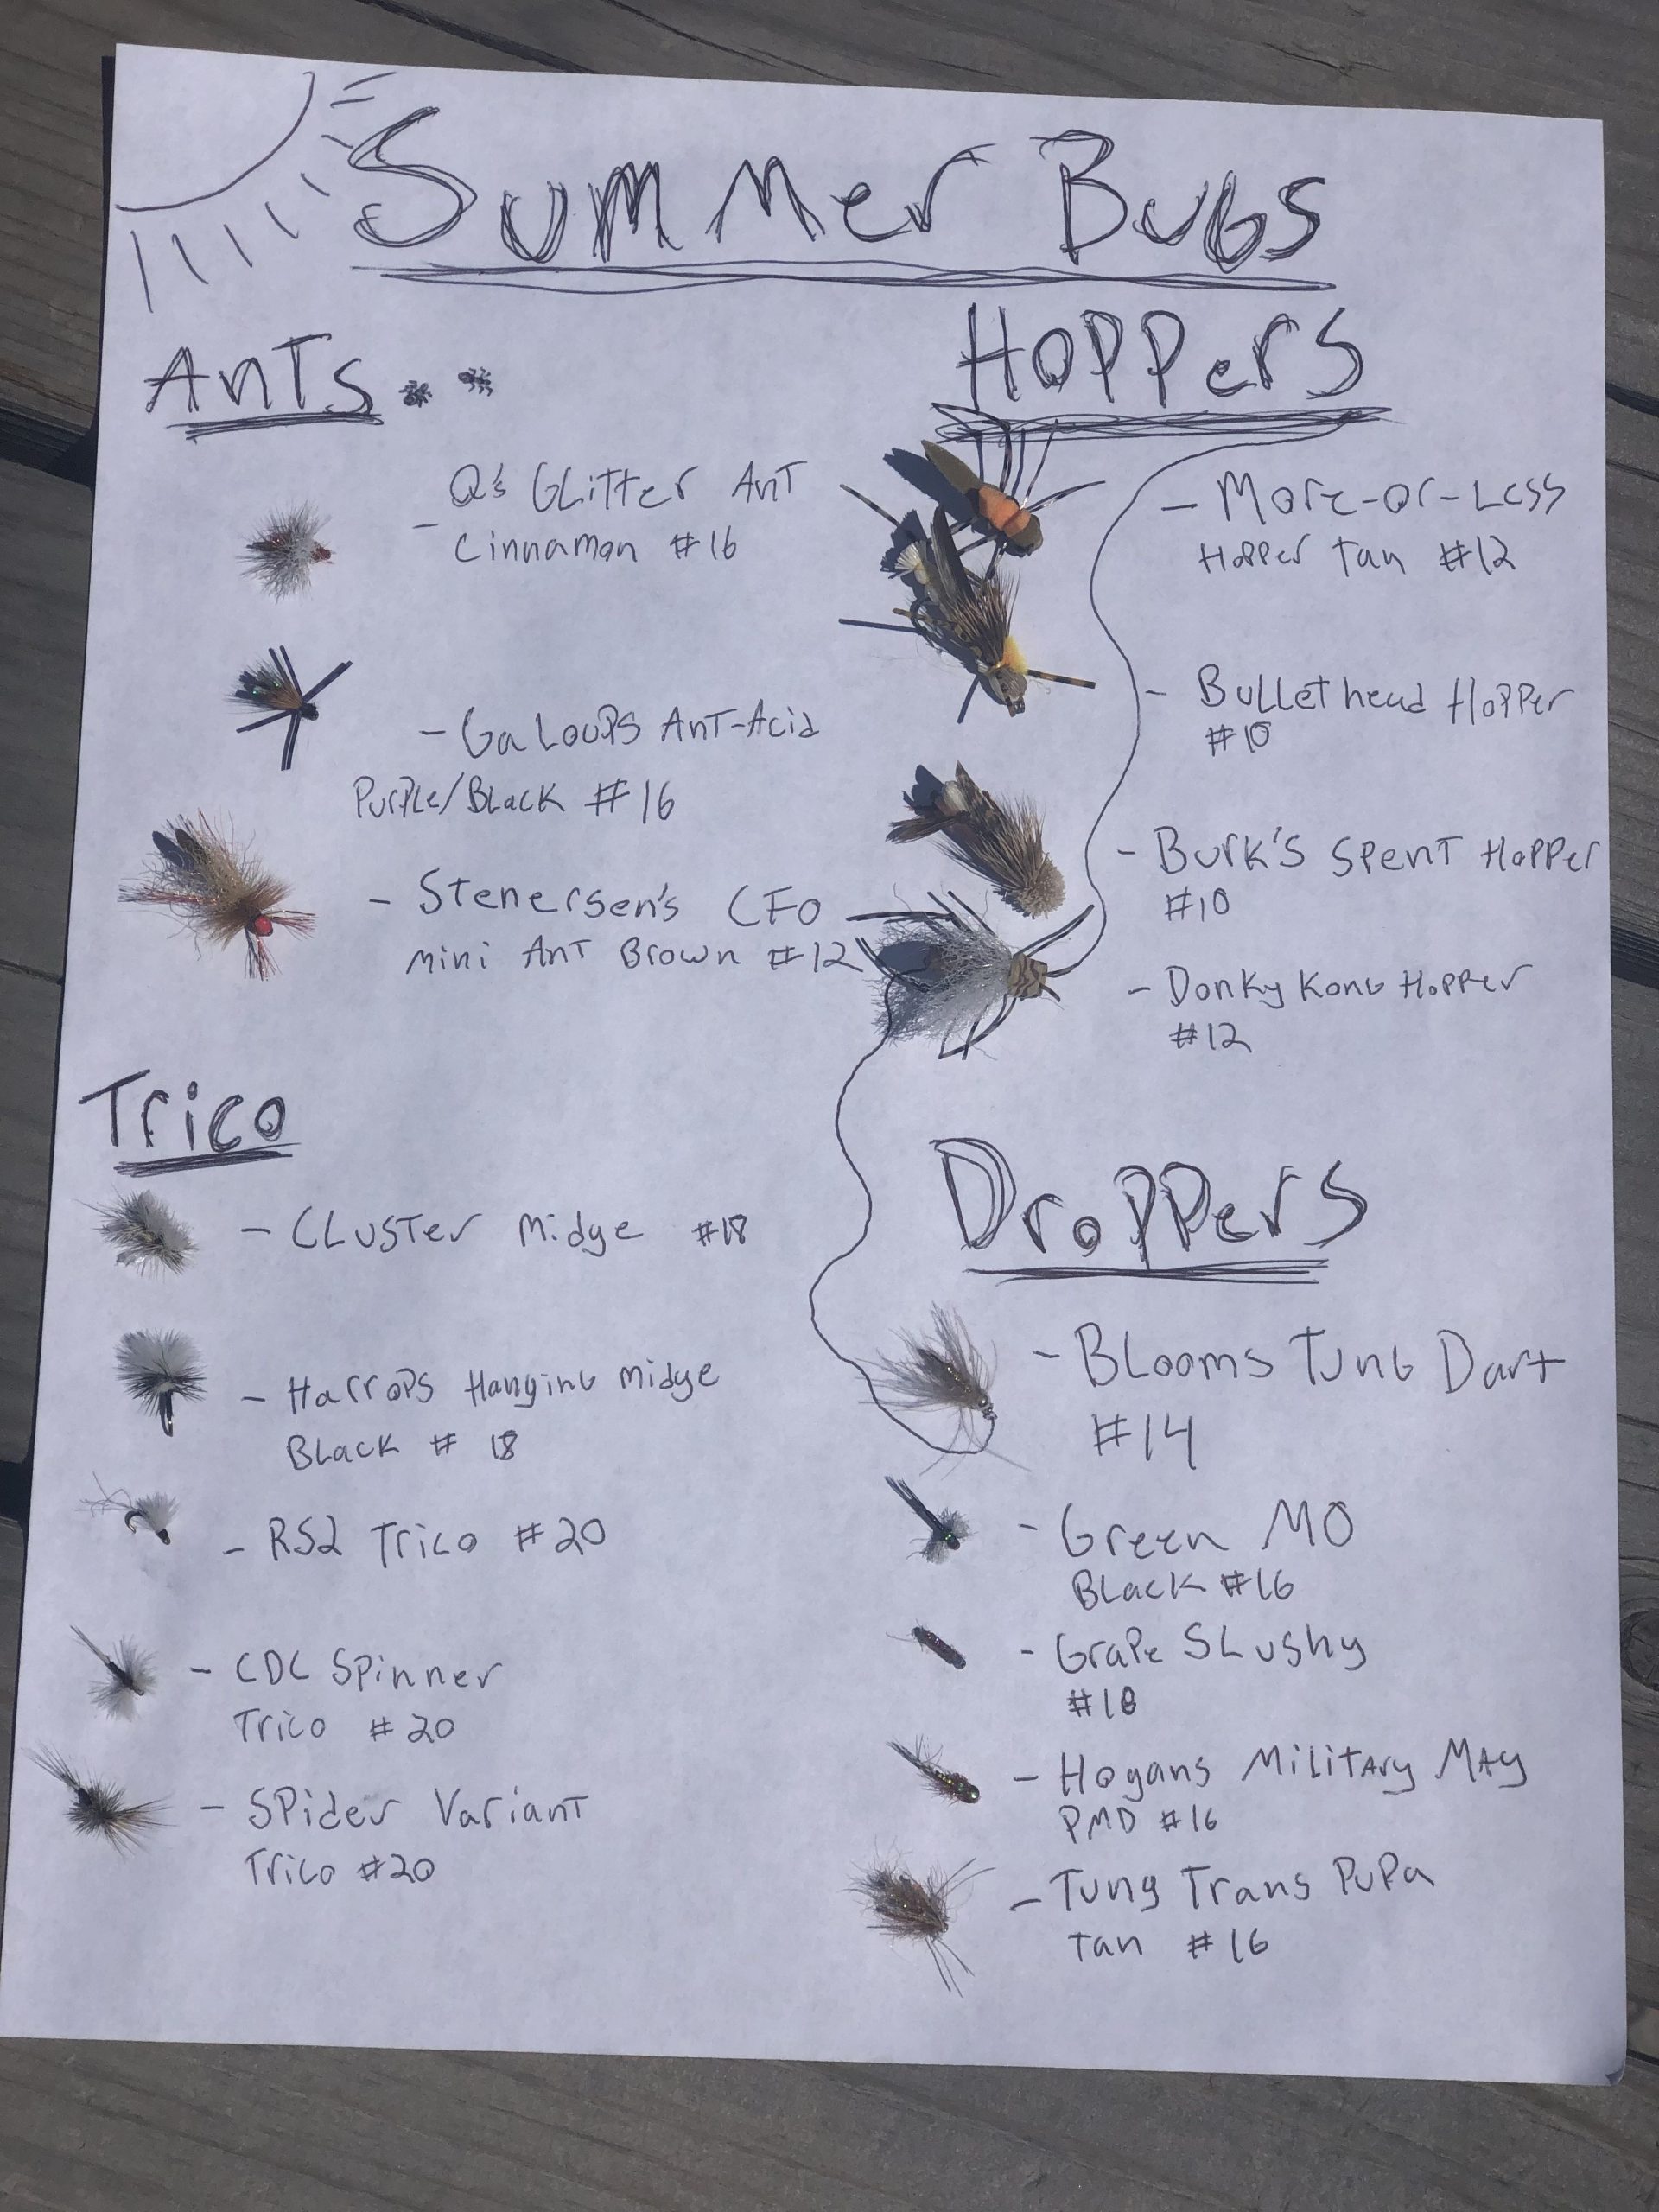 Summer Bugs
Ants
- Q's Glitter Ant
Cinnamon #16
- GaLoups Ant-Acid
Purple/Black #16
- Stenersen's CFO
mini Ant Brown #12
Hoppers
- More-or-Less
Hopper tan #12
- Bullethead Hopper
#10
- Burk's Spent Hopper
#10
- Donky Kong Hopper
#12
Trico
- Cluster Midge #18
- Harrops Hanging midge
Black # 18
- RS2 Trico #20
- CDC Spinner
Trico #20
- Spider Variant
Trico #20
Droppers
- Blooms Tung Dart
#14
- Green MO
Black #16
- Grape Slushy
- Hogans Military May
PMD #16
- Tung Trans Pupa
Tan #16